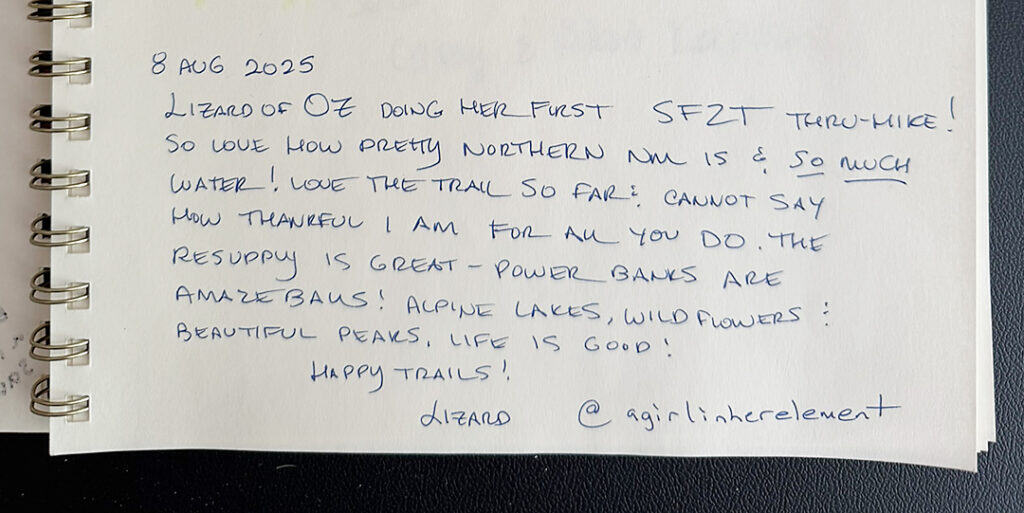 8 AUG 2025
LIZARD OF OZ DOING HER FIRST SFZT THRU-HIKE!
SO LOVE HOW PRETTY NORTHERN NM IS & SO MUCH
WATER! LOVE THE TRAIL SO FAR & CANNOT SAY
HOW THANKFUL I AM FOR ALL YOU DO. THE
RESUPPLY IS GREAT - POWER BANKS ARE
AMAZEBALLS! ALPINE LAKES, WILDFLOWERS &
BEAUTIFUL PEAKS, LIFE IS GOOD!
HAPPY TRAILS!
LIZARD @agirlinherelement